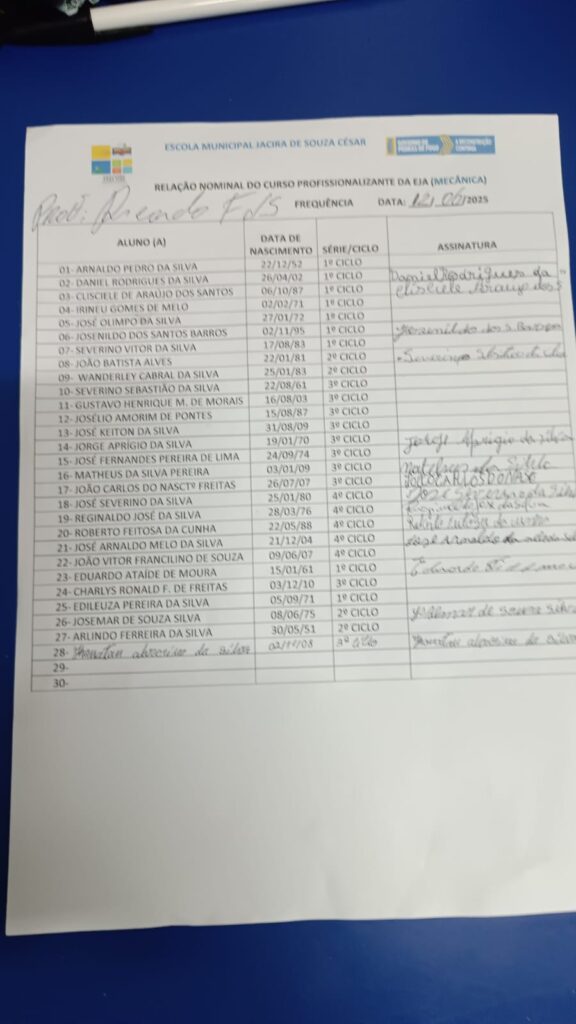 ESCOLA MUNICIPAL JACIRA DE SOUZA CÉSAR
A RECONSTRUÇÃO CONTINUA
RELAÇÃO NOMINAL DO CURSO PROFISSIONALIZANTE DA EJA (MECÂNICA)
FREQUÊNCIA DATA: 12/06/2025
ALUNO (A) DATA DE NASCIMENTO SÉRIE/CICLO ASSINATURA
01- ARNALDO PEDRO DA SILVA 22/12/52 1º CICLO
02- DANIEL RODRIGUES DA SILVA 26/04/02 1º CICLO Daniel Rodrigues da
03- CLISCIELE DE ARAÚJO DOS SANTOS 06/10/87 1º CICLO Araujo dos S
04- IRINEU GOMES DE MELO 02/02/71 1º CICLO
05- JOSÉ OLIMPO DA SILVA 27/01/72 1º CICLO
06- JOSENILDO DOS SANTOS BARROS 02/11/95 1º CICLO Josenildo dos S. Barros
07- SEVERINO VITOR DA SILVA 17/08/83 1º CICLO
08- JOÃO BATISTA ALVES 22/01/81 2º CICLO
09- WANDERLEY CABRAL DA SILVA 25/01/83 2º CICLO
10- SEVERINO SEBASTIÃO DA SILVA 22/08/61 3º CICLO
11- GUSTAVO HENRIQUE M. DE MORAIS 16/08/03 3º CICLO
12- JOSÉLIO AMORIM DE PONTES 15/08/87 3º CICLO
13- JOSÉ KEITON DA SILVA 31/08/09 3º CICLO
14- JORGE APRÍGIO DA SILVA 19/01/70 3º CICLO Jorge Aprigio da Silva
15- JOSÉ FERNANDES PEREIRA DE LIMA 24/09/74 3º CICLO
16- MATHEUS DA SILVA PEREIRA 03/01/09 3º CICLO
17- JOÃO CARLOS DO NASCTº FREITAS 26/07/07 3º CICLO
18- JOSÉ SEVERINO DA SILVA 25/01/80 4º CICLO José Severino da Silva
19- REGINALDO JOSÉ DA SILVA 28/03/76 4º CICLO
20- ROBERTO FEITOSA DA CUNHA 22/05/88 4º CICLO
21- JOSÉ ARNALDO MELO DA SILVA 21/12/04 4º CICLO José Arnaldo da
22- JOÃO VITOR FRANCILINO DE SOUZA 09/06/07 4º CICLO
23- EDUARDO ATAÍDE DE MOURA 15/01/61 1º CICLO Eduardo
24- CHARLYS RONALD F. DE FREITAS 03/12/10 3º CICLO
25- EDILEUZA PEREIRA DA SILVA 05/09/71 1º CICLO
26- JOSEMAR DE SOUZA SILVA 08/06/75 2º CICLO de souza silva
27- ARLINDO FERREIRA DA SILVA 30/05/51 2º CICLO
28- da silva 02/11/08 3º ciclo da silva
29-
30-